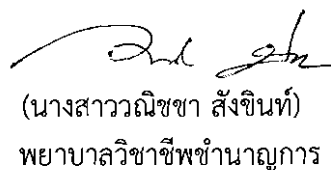 (นางสาววณิชชา สังขินท์)
พยาบาลวิชาชีพชำนาญการ